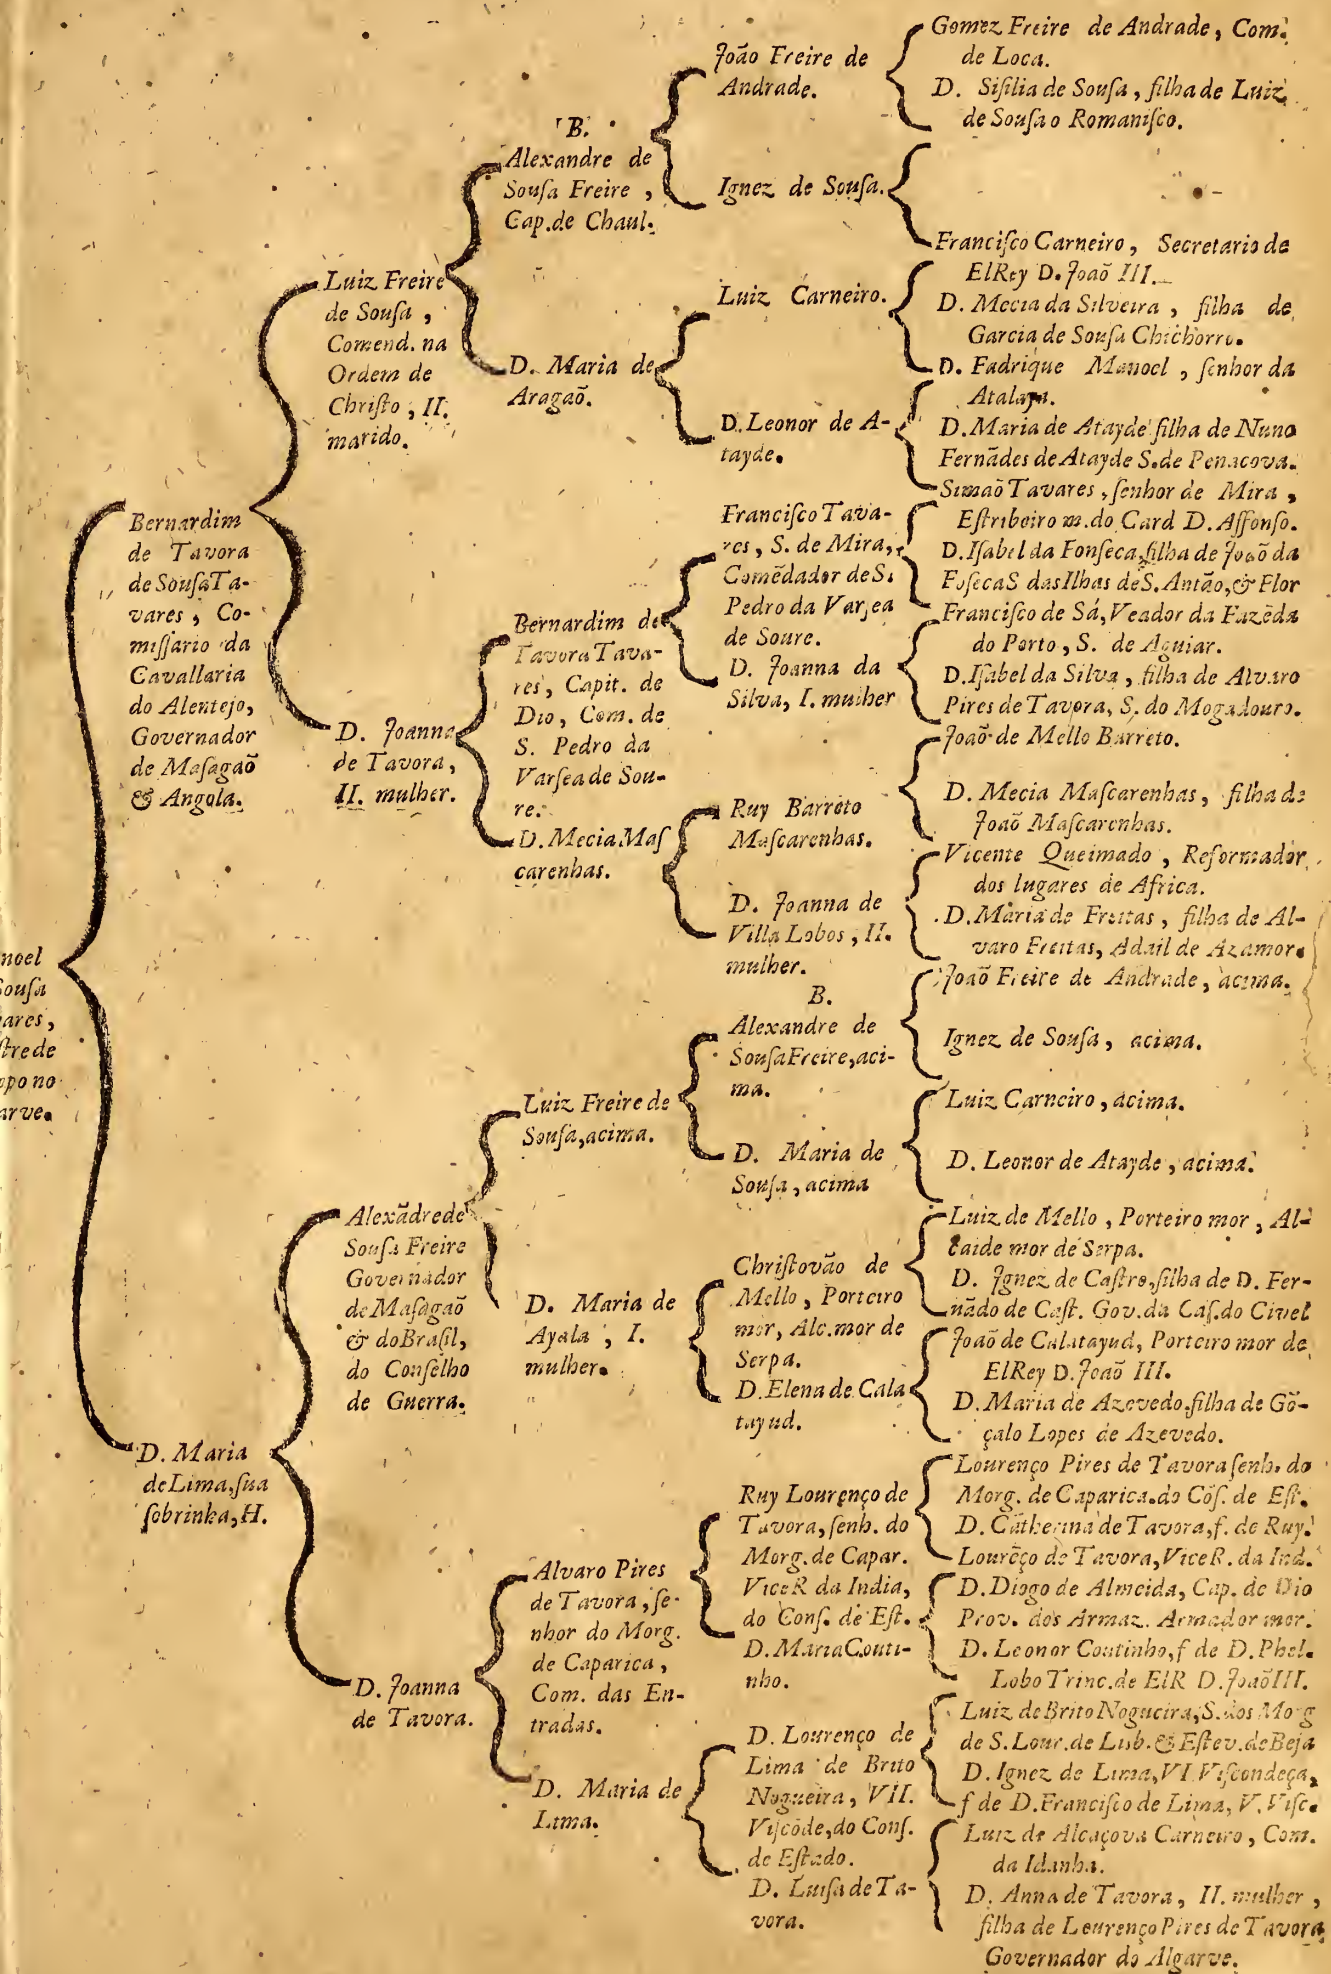 noel
Souſa
ares,
ſtre de
po no
arve.
Bernardim
de Tavora
de Souſa Ta-
vares, Co-
miſſario da
Cavallaria
do Alentejo,
Governador
de Maſagaõ
& Angola.
D. Maria
de Lima, ſua
ſobrinha, H.
Luiz Freire
de Souſa,
Comend. na
Ordem de
Chriſto, II.
marido.
D. Joanna
de Tavora,
II. mulher.
Alexãdre de
Souſa Freire
Governador
de Maſagaõ
& do Braſil,
do Conſelho
de Guerra.
D. Joanna
de Tavora.
B.
Alexandre de
Souſa Freire,
Cap. de Chaul.
D. Maria de
Aragaõ.
Bernardim de
Tavora Tava-
res, Capit. de
Dio, Com. de
S. Pedro da
Varſea de Sou-
re.
D. Mecia Maſ
carenhas.
Luiz Freire de
Souſa, acima.
D. Maria de
Ayala, I.
mulher.
Alvaro Pires
de Tavora, ſe-
nhor do Morg.
de Caparica,
Com. das En-
tradas.
D. Maria de
Lima.
João Freire de
Andrade.
Ignez de Souſa.
Luiz Carneiro.
D. Leonor de A-
tayde.
Franciſco Tava-
res, S. de Mira,
Comẽdador de S.
Pedro da Varjea
de Soure.
D. Joanna da
Silva, I. mulher
Ruy Barreto
Maſcarenhas.
D. Joanna de
Villa Lobos, II.
mulher.
B.
Alexandre de
Souſa Freire, aci-
ma.
D. Maria de
Souſa, acima
Chriſtovão de
Mello, Porteiro
mor, Alc. mor de
Serpa.
D. Elena de Cala
tayud.
Ruy Lourenço de
Tavora, ſenh. do
Morg. de Capar.
Vice R da India,
do Conſ. de Eſt.
D. Maria Couti-
nho.
D. Lourenço de
Lima de Brito
Nogueira, VII.
Viſcõde, do Conſ.
de Eſtado.
D. Luiſa de Ta-
vora.
Gomez Freire de Andrade, Com.
de Loca.
D. Siſilia de Souſa, filha de Luiz
de Souſa o Romaniſco.
Franciſco Carneiro, Secretario de
ElRey D. Joaõ III.
D. Mecia da Silveira, filha de
Garcia de Souſa Chichorro.
D. Fadrique Manoel, ſenhor da
Atalaya.
D. Maria de Atayde filha de Nuno
Fernãdes de Atayde S. de Penacova.
Simaõ Tavares, ſenhor de Mira,
Eſtribeiro m. do Card D. Affonſo.
D. Iſabel da Fonſeca, filha de Joaõ da
Foſeca S das Ilhas de S. Antão, & Flor
Franciſco de Sá, Veador da Fazẽda
do Porto, S. de Aguiar.
D. Iſabel da Silva, filha de Alvaro
Pires de Tavora, S. do Mogadouro.
Joaõ de Mello Barreto.
D. Mecia Maſcarenhas, filha de
Joaõ Maſcarenhas.
Vicente Queimado, Reformador
dos lugares de Africa.
D. Maria de Freitas, filha de Al-
varo Freitas, Adail de Azamor.
Joaõ Freire de Andrade, acima.
Ignez de Souſa, acima.
Luiz Carneiro, acima.
D. Leonor de Atayde, acima.
Luiz de Mello, Porteiro mor, Al-
caide mor de Serpa.
D. Ignez de Caſtro, filha de D. Fer-
nãdo de Caſt. Gov. da Caſ. do Civel
Joaõ de Calatayud, Porteiro mor de
ElRey D. Joaõ III.
D. Maria de Azevedo, filha de Gõ-
çalo Lopes de Azevedo.
Lourenço Pires de Tavora ſenh. do
Morg. de Caparica. do Cõſ. de Eſt.
D. Catherina de Tavora, f. de Ruy
Lourẽço de Tavora, Vice R. da Ind.
D. Diogo de Almeida, Cap. de Dio
Prov. dos Armaz. Armador mor.
D. Leonor Coutinho, f de D. Phel.
Lobo Trinc. de ElR D. Joaõ III.
Luiz de Brito Nogueira, S. dos Morg
de S. Lour. de Lisb. & Eſtev. de Beja
D. Ignez de Lima, VI Viſcondeça,
f de D. Franciſco de Lima, V. Viſc.
Luiz de Alcaçova Carneiro, Com.
da Idanha.
D. Anna de Tavora, II. mulher,
filha de Lourenço Pires de Tavora
Governador do Algarve.